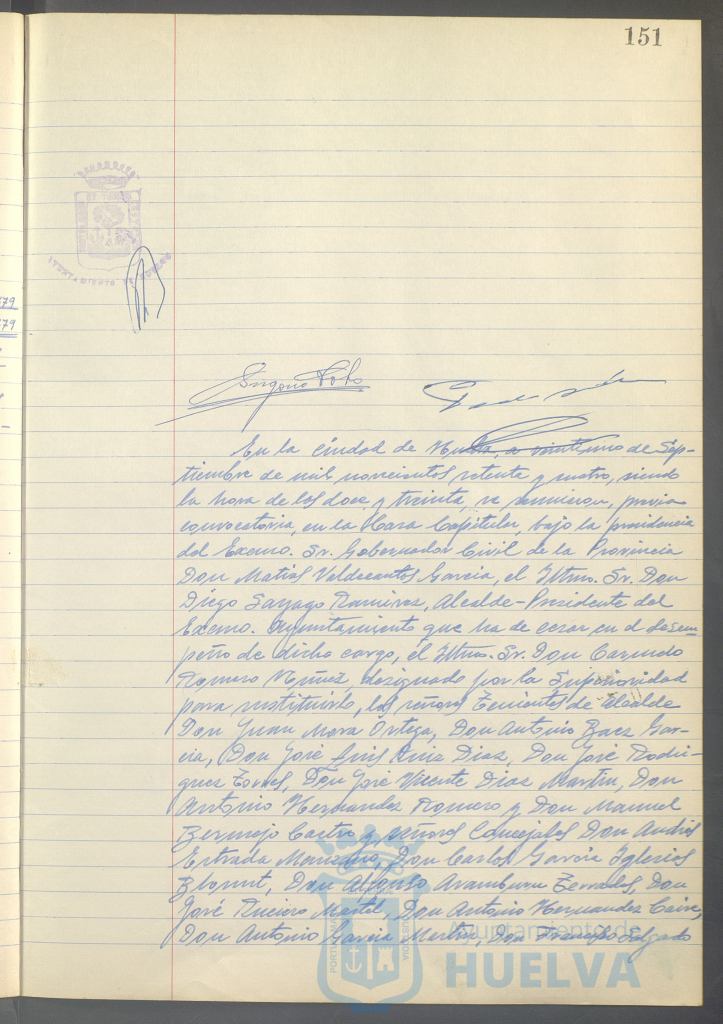 151
AYUNTAMIENTO DE HUELVA
En la ciudad de Huelva, a veintiuno de Sep-
tiembre de mil novecientos setenta y cuatro, siendo
la hora de las doce y treinta, se reunieron, previa
convocatoria, en la Casa Capitular, bajo la presidencia
del Excmo. Sr. Gobernador Civil de la Provincia
Don Matias Valdecantos Garcia, el Iltmo. Sr. Don
Diego Sayago Ramirez, Alcalde-Presidente del
Excmo. Ayuntamiento que ha de cesar en el desem-
peño de dicho cargo, el Iltmo. Sr. Don Carmelo
Romero Nuñez, designado por la Superioridad
para sustituirlo, los señores Tenientes de Alcalde
Don Juan Mora Ortega, Don Antonio Baez Gar-
cia, Don José Luis Ruiz Diaz, Don José Rodri-
guez Torres, Don José Vicente Diaz Martin, Don
Antonio Hernandez Romero y Don Manuel
Bermejo Castro y señores Concejales Don Andrés
Estrada Manzano, Don Carlos Garcia Iglesias
Blount, Don Alfonso Aramburu Terrades, Don
José Rueiro Martel, Don Antonio Hernandez
Don Antonio Garcia Martin, Don Francisco Salgado
Ayuntamiento de
HUELVA